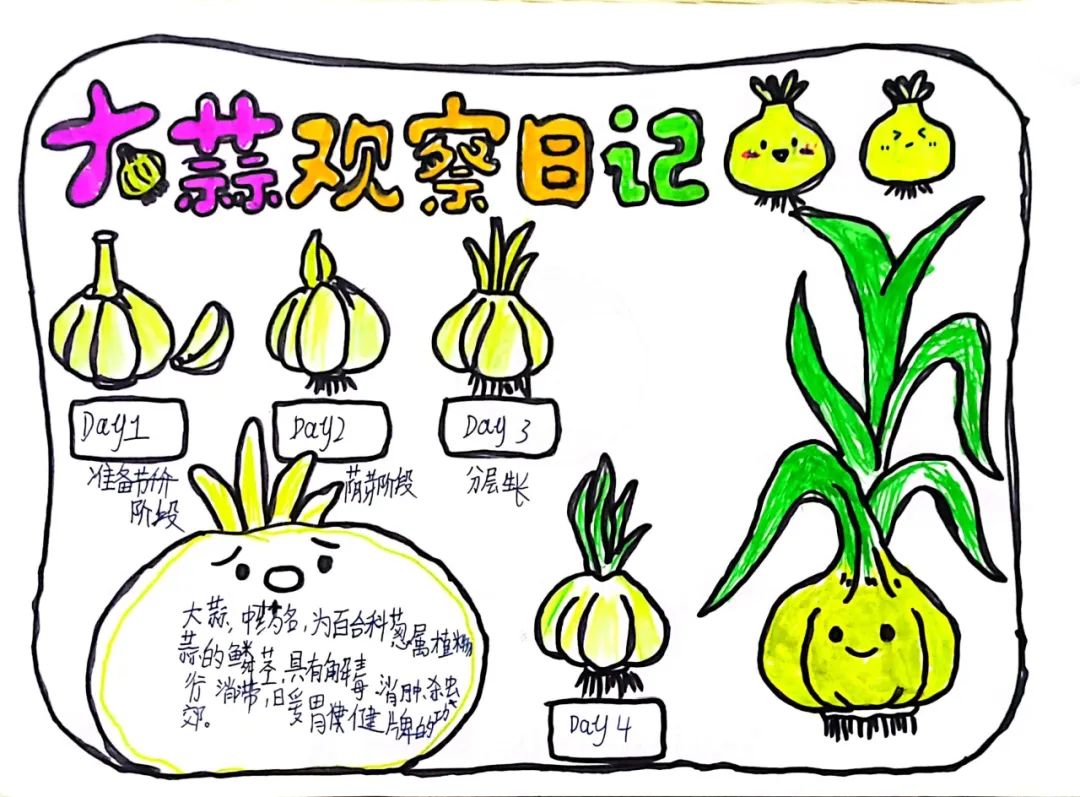 大蒜观察日记
Day1
Day2
Day 3
准备
阶段
萌芽阶段
分层生长
大蒜,中药名,为百合科葱属植物
蒜的鳞茎,具有解毒 消肿.杀虫
行 消滞,暖胃健牌的功
郊。
Day 4